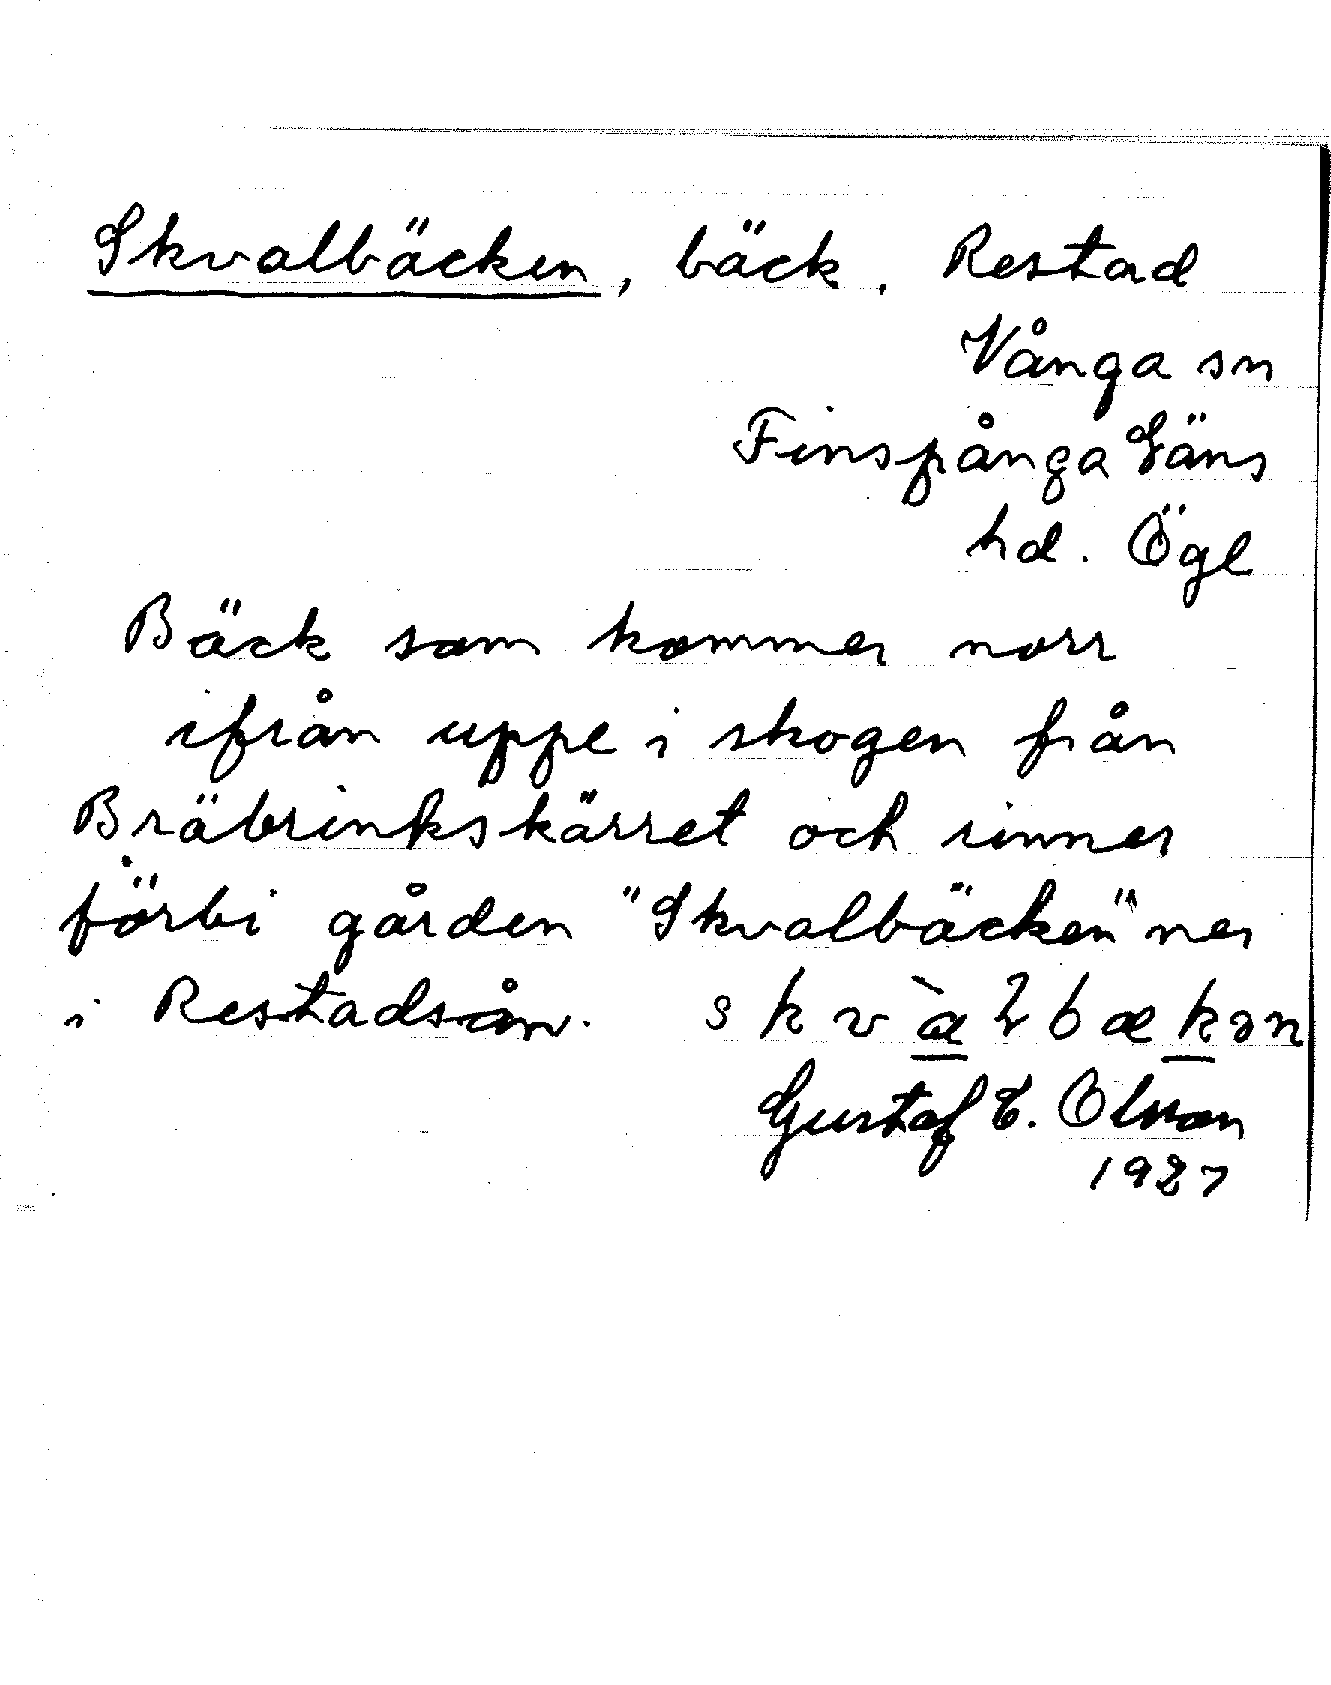 Skvalbäcken, bäck. Restad
Vånga sn
Finspånga Läns
hd. Ögl
Bäck som kommer norr
ifrån uppe i skogen från
Bräbrinkskärret och rinner
förbi gården "Skvalbäcken" ner
i Restadsån. skvàlbækən
Gustaf E. Olsson
1927